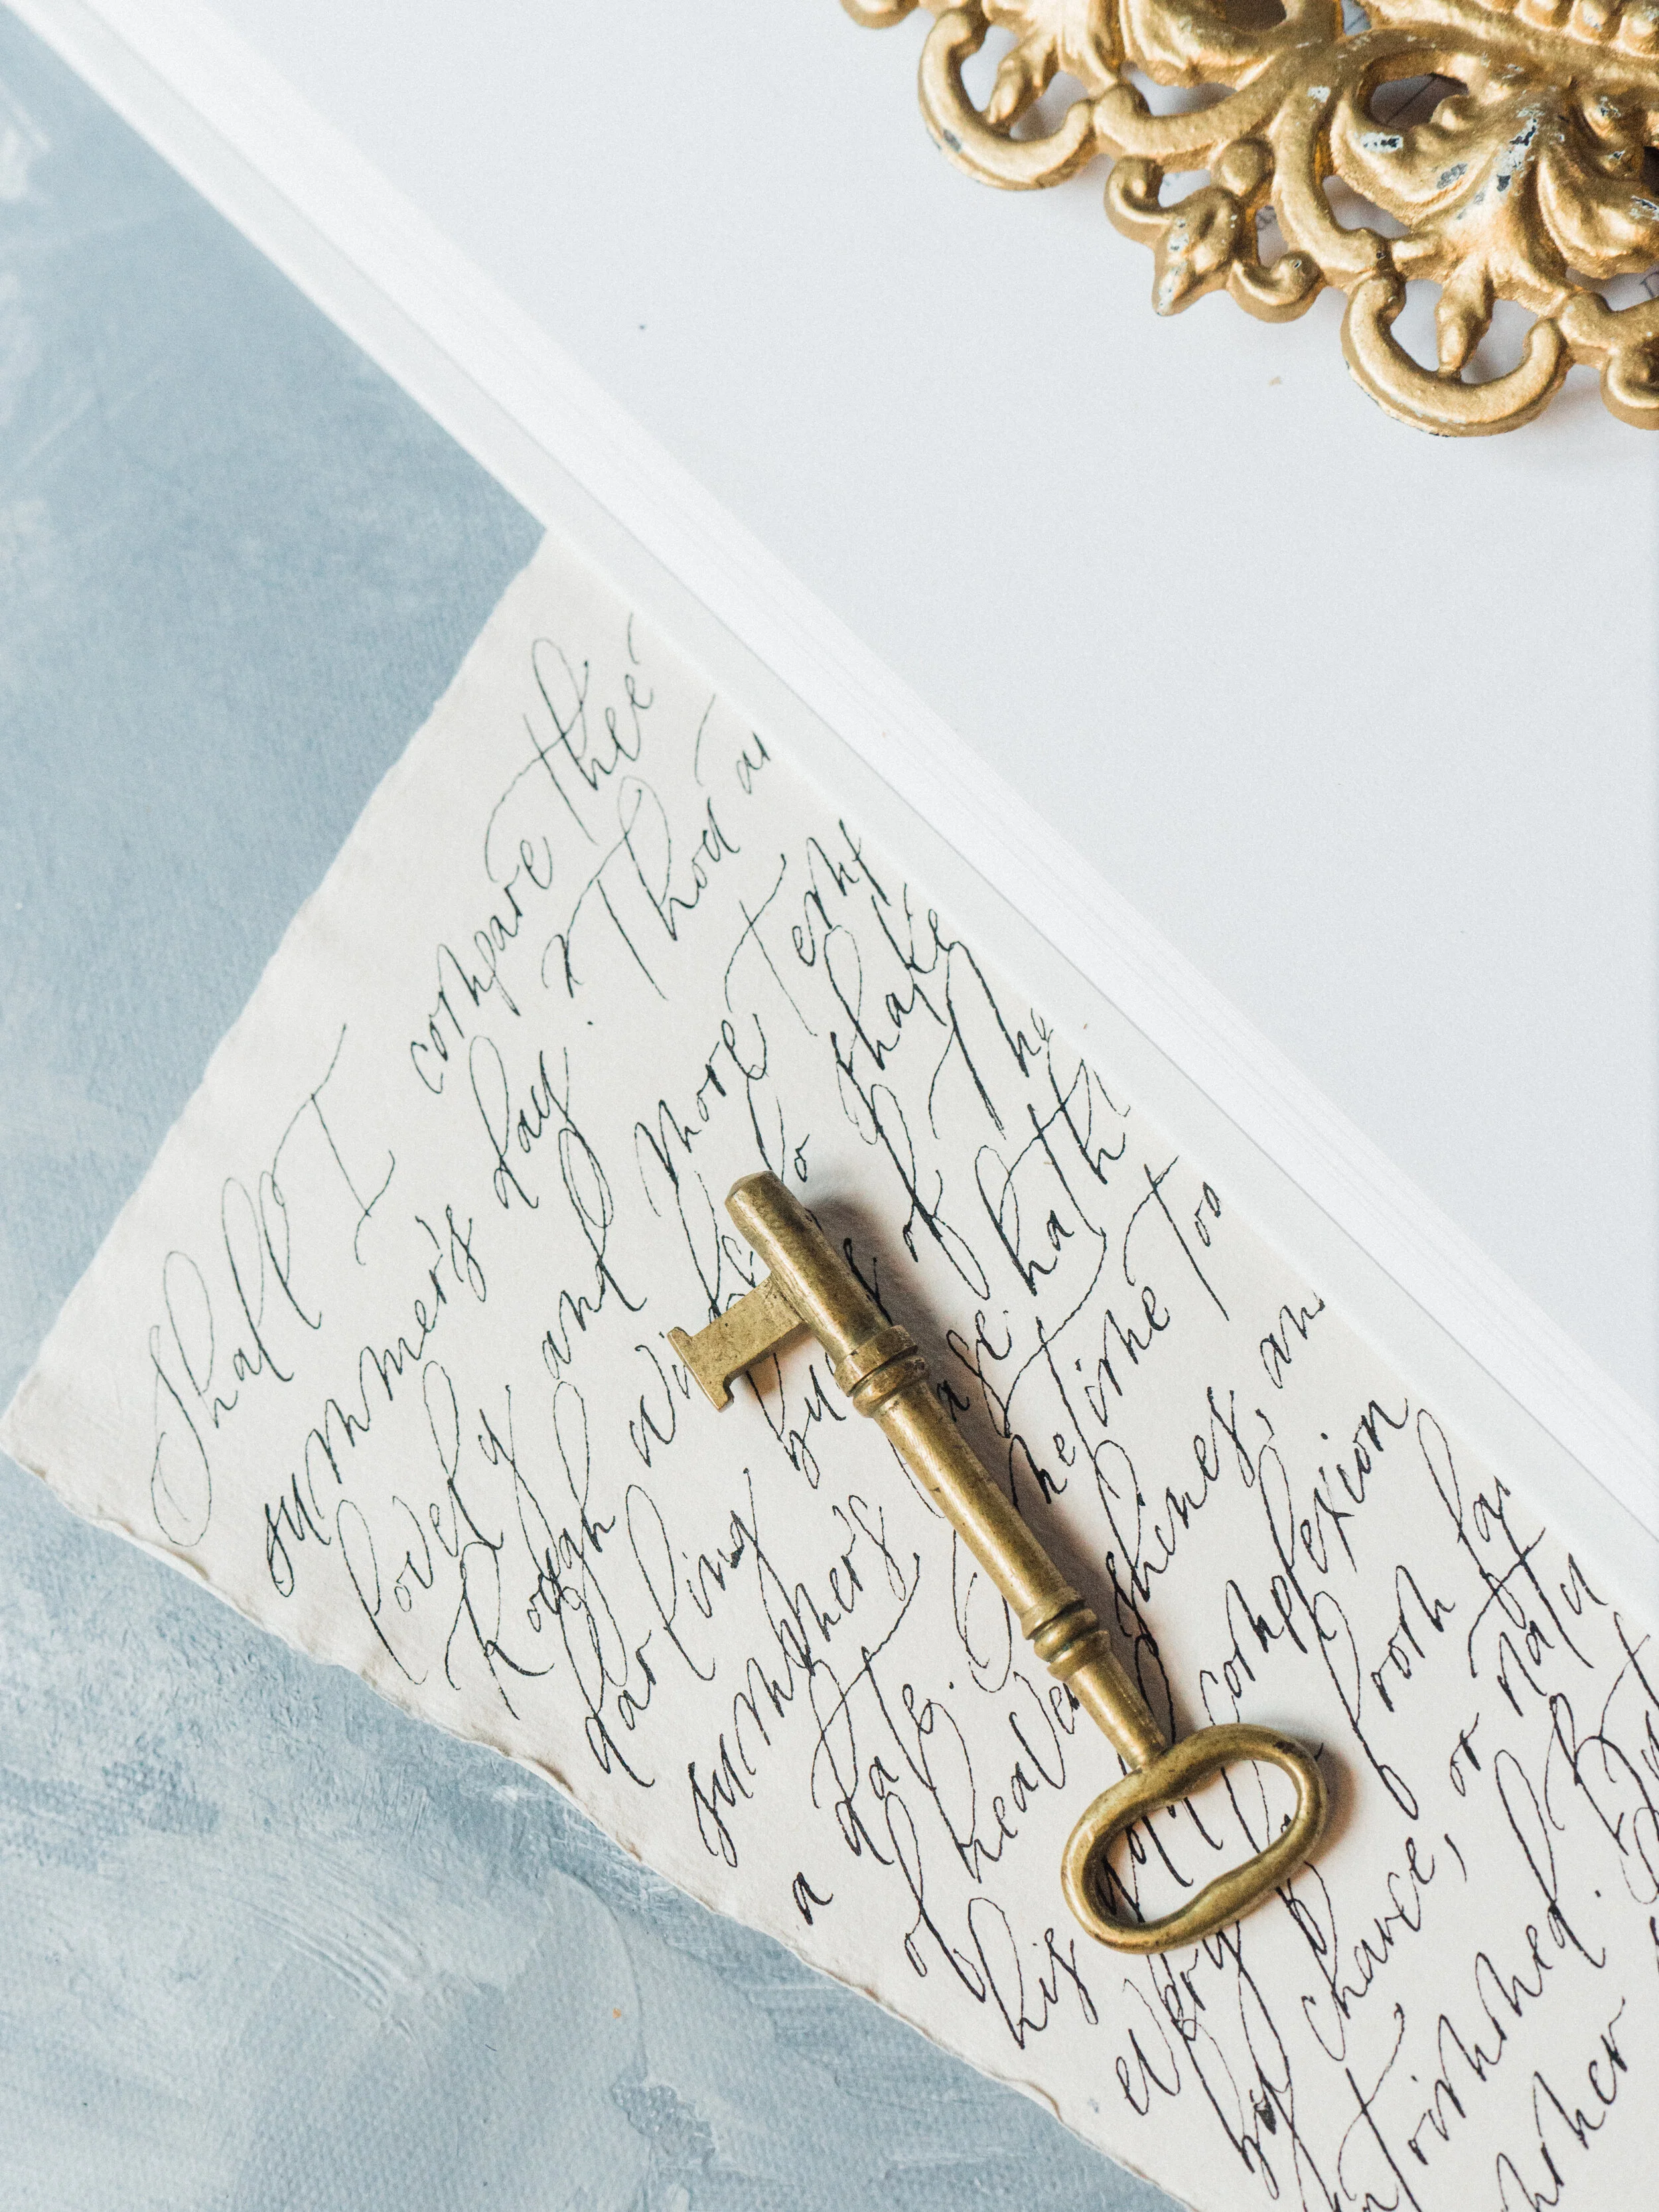 Shall I compare thee
summer's day? Thou a
lovely and more Temp
Rough wi do shake
darling bu s of Ma
summer's ase hath
a date. time too
of heaven shines, an
his complexion
every f from fai
by chance, or natu
untrimmed. B
summer